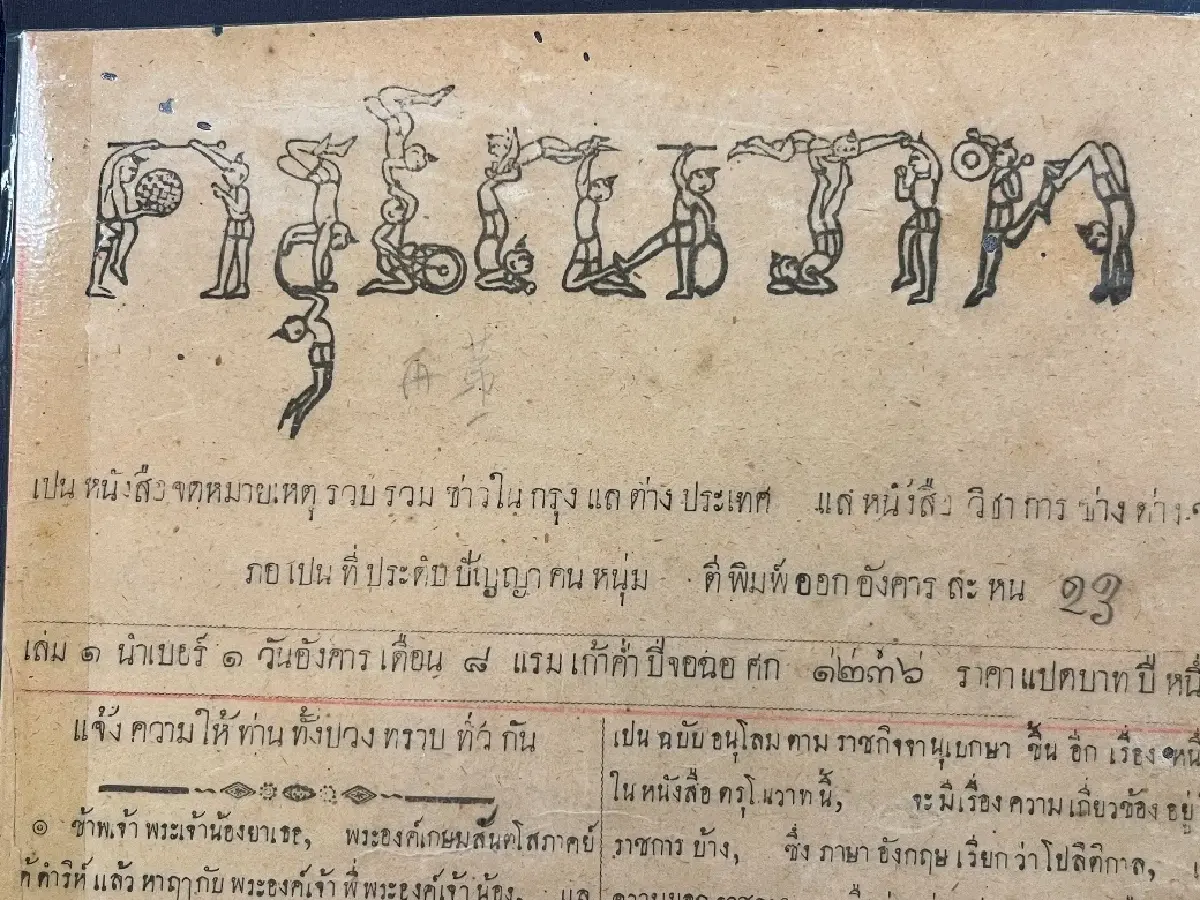 ดรุโณวาท
เปน หนังสือ จดหมายเหตุ รวบ รวม ข่าวใน กรุง แล ต่าง ประเทศ แล หนังสือ วิชา การ ช่าง ต่าง
ภอ เปน ที่ ประดับ ปัญญา คน หนุ่ม ตีพิมพ์ ออก อังคาร ละ หน
เล่ม ๑ นำเบอร์ ๑ วันอังคาร เดือน ๘ แรม เก้าค่ำ ปีจอฉอ ศก ๑๒๓๖ ราคา แปดบาท ปี หนึ่
แจ้ง ความให้ ท่าน ทั้งปวง ทราบ ทั่ว กัน
๏ ข้าพเจ้า พระเจ้าน้องยาเธอ, พระองค์เกษมสันตโสภาคย์
ได้ดำริห์ แล้ว หาฤๅกับ พระองค์เจ้า พี่ พระองค์เจ้า น้อง, แล
เปน ฉบับ อนุโลม ตาม ราชกิจจานุเบกษา ขึ้น อีก เรื่อง หนึ่
ใน หนังสือ ดรุโณวาท นี้, จะ มีเรื่อง ความ เกี่ยวข้อง อยู่
ราชการ บ้าง, ซึ่ง ภาษา อังกฤษ เรียก ว่า โปลิติกาล,